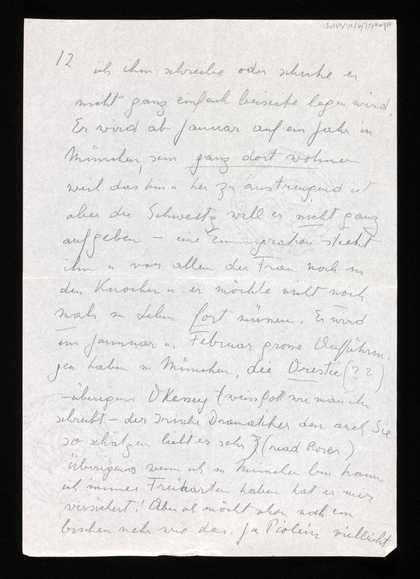 12
ich ihm schreibe oder schicke er
nicht ganz einfach beiseite legen wird.
Er wird ab Januar auf ein Jahr in
München sein ganz dort wohnen
weil das hin u her zu anstrengend ist
aber die Schweitz will er nicht ganz
aufgeben – eine Emigration steckt
ihm u vor allem der Frau noch in
den Knochen u. er möchte nicht noch
mals im Leben fort müssen. Er wird
im Januar u. Februar grosse Aufführun-
gen haben in München, die Orestie (??)
– übrigens O'Kesey (weiss Gott wie man ihn
schreibt – der Irische Dramatiker den auch Sie
so schätzen liebt er sehr) (read Roses)
übrigens wenn ich in München bin kann
ich immer Freikarten haben hat er mir
versichert! Aber ich möcht eben noch ein
bischen mehr wie das. Ja vielleicht